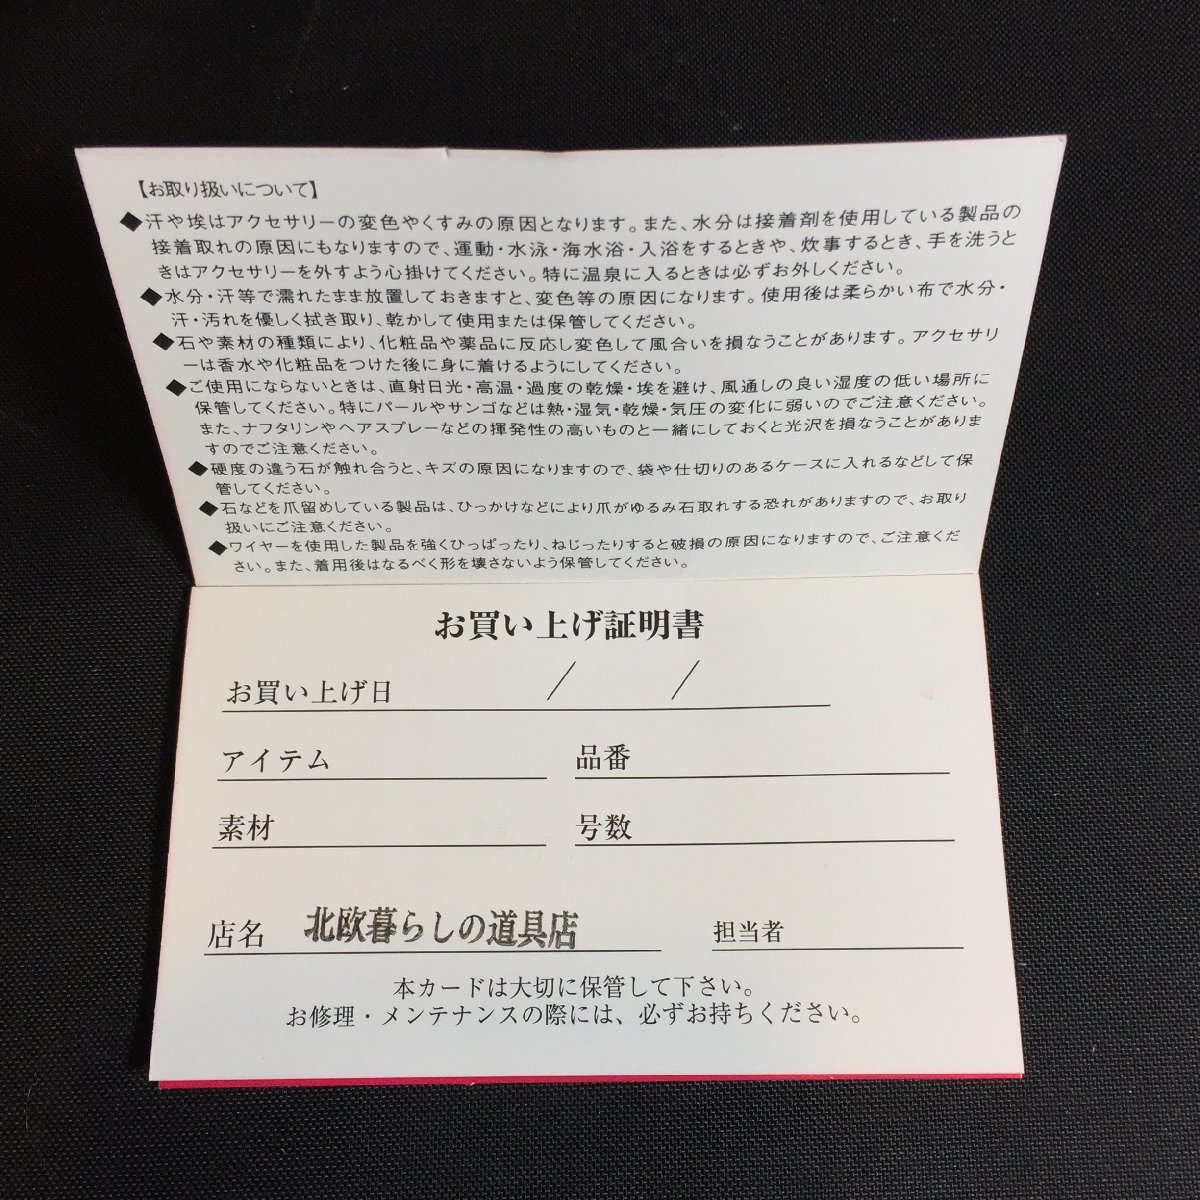 【お取り扱いについて】
◆汗や埃はアクセサリーの変色やくすみの原因となります。また、水分は接着剤を使用している製品の
接着取れの原因にもなりますので、運動・水泳・海水浴・入浴をするときや、炊事するとき、手を洗うと
きはアクセサリーを外すよう心掛けてください。特に温泉に入るときは必ずお外しください。
◆水分・汗等で濡れたまま放置しておきますと、変色等の原因になります。使用後は柔らかい布で水分・
汗・汚れを優しく拭き取り、乾かして使用または保管してください。
◆石や素材の種類により、化粧品や薬品に反応し変色して風合いを損なうことがあります。アクセサリ
ーは香水や化粧品をつけた後に身に着けるようにしてください。
◆ご使用にならないときは、直射日光・高温・過度の乾燥・埃を避け、風通しの良い湿度の低い場所に
保管してください。特にパールやサンゴなどは熱・湿気・乾燥・気圧の変化に弱いのでご注意ください。
また、ナフタリンやヘアスプレーなどの揮発性の高いものと一緒にしておくと光沢を損なうことがありま
すのでご注意ください。
◆硬度の違う石が触れ合うと、キズの原因になりますので、袋や仕切りのあるケースに入れるなどして保
管してください。
◆石などを爪留めしている製品は、ひっかけなどにより爪がゆるみ石取れする恐れがありますので、お取り
扱いにご注意ください。
◆ワイヤーを使用した製品を強くひっぱったり、ねじったりすると破損の原因になりますので、ご注意くだ
さい。また、着用後はなるべく形を壊さないよう保管してください。
お買い上げ証明書
お買い上げ日 / /
アイテム 品番
素材 号数
店名 北欧暮らしの道具店 担当者
本カードは大切に保管して下さい。
お修理・メンテナンスの際には、必ずお持ちください。